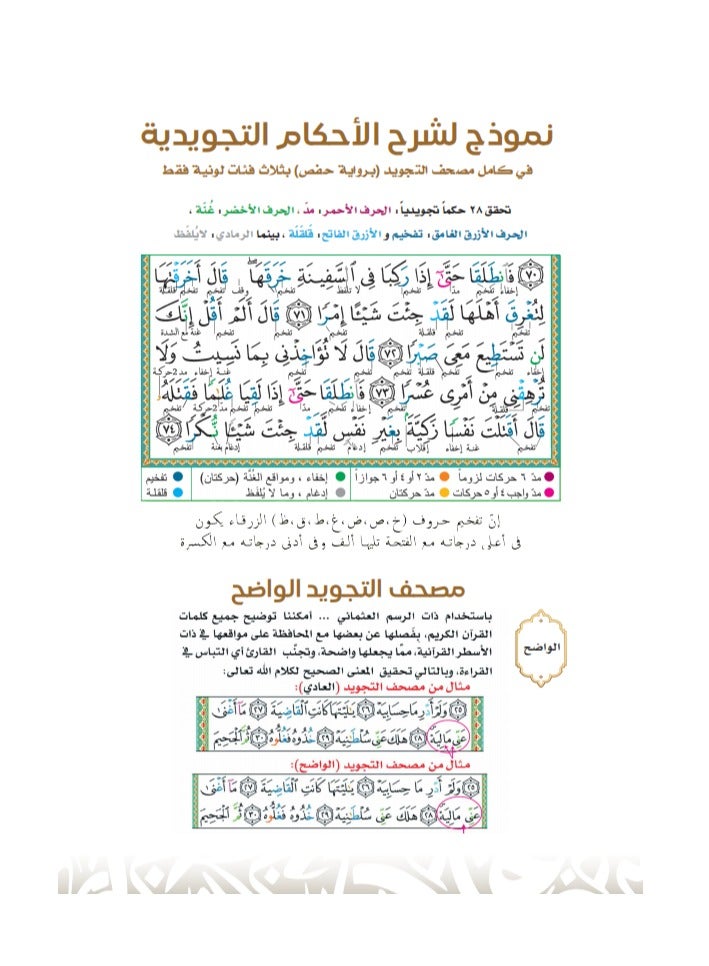 نموذج لشرح الأحكام التجويدية
في كامل مصحف التجويد (برواية حفص) بثلاث فئات لونية فقط
تحقق ٢٨ حكماً تجويدياً: الحرف الأحمر: مدّ، الحرف الأخضر: غُنّة،
الحرف الأزرق الغامق: تفخيم و الأزرق الفاتح: قلقلة، بينما الرمادي: لايُلفَظ
٧٠ فَٱنطَلَقَا حَتَّىٰٓ إِذَا رَكِبَا فِى ٱلسَّفِينَةِ خَرَقَهَا ۖ قَالَ أَخَرَقْتَهَا
لِتُغْرِقَ أَهْلَهَا لَقَدْ جِئْتَ شَيْـًٔا إِمْرًا ٧١ قَالَ أَلَمْ أَقُلْ إِنَّكَ
لَن تَسْتَطِيعَ مَعِىَ صَبْرًا ٧٢ قَالَ لَا تُؤَاخِذْنِى بِمَا نَسِيتُ وَلَا
تُرْهِقْنِى مِنْ أَمْرِى عُسْرًا ٧٣ فَٱنطَلَقَا حَتَّىٰٓ إِذَا لَقِيَا غُلَـٰمًا فَقَتَلَهُۥ
قَالَ أَقَتَلْتَ نَفْسًا زَكِيَّةًۢ بِغَيْرِ نَفْسٍ لَّقَدْ جِئْتَ شَيْـًٔا نُّكْرًا ٧٤
مدّ ٦ حركات لزوماً مدّ ٢ أو ٤ أو ٦ جوازاً إخفاء، ومواقع الغُنَّة (حركتان) تفخيم
مدّ واجب ٤ أو ٥ حركات مدّ حركتان إدغام، وما لا يُلفَظ قلقلة
إنّ تفخيم حروف (خ،ص،ض،غ،ط،ق،ظ) الزرقاء يكون
في أعلى درجاته مع الفتحة تليها ألف وفي أدنى درجاته مع الكسرة
مصحف التجويد الواضح
الواضح
باستخدام ذات الرسم العثماني ... أمكننا توضيح جميع كلمات
القرآن الكريم، بفَصلها عن بعضها مع المحافظة على مواقعها في ذات
الأسطر القرآنية، ممّا يجعلها واضحة، وتجنّب القارئ أي التباس في
القراءة، وبالتالي تحقيق المعنى الصحيح لكلام الله تعالى:
مثال من مصحف التجويد (العادي):
٢٥ وَلَمْ أَدْرِ مَا حِسَابِيَهْ ٢٦ يَـٰلَيْتَهَا كَانَتِ ٱلْقَاضِيَةَ ٢٧ مَآ أَغْنَىٰ
عَنِّى مَالِيَهْ ٢٨ هَلَكَ عَنِّى سُلْطَـٰنِيَهْ ٢٩ خُذُوهُ فَغُلُّوهُ ٣٠ ثُمَّ ٱلْجَحِيمَ
مثال من مصحف التجويد (الواضح):
٢٥ وَلَمْ أَدْرِ مَا حِسَابِيَهْ ٢٦ يَـٰلَيْتَهَا كَانَتِ ٱلْقَاضِيَةَ ٢٧ مَآ أَغْنَىٰ
عَنِّى مَالِيَهْ ٢٨ هَلَكَ عَنِّى سُلْطَـٰنِيَهْ ٢٩ خُذُوهُ فَغُلُّوهُ ٣٠ ثُمَّ ٱلْجَحِيمَ